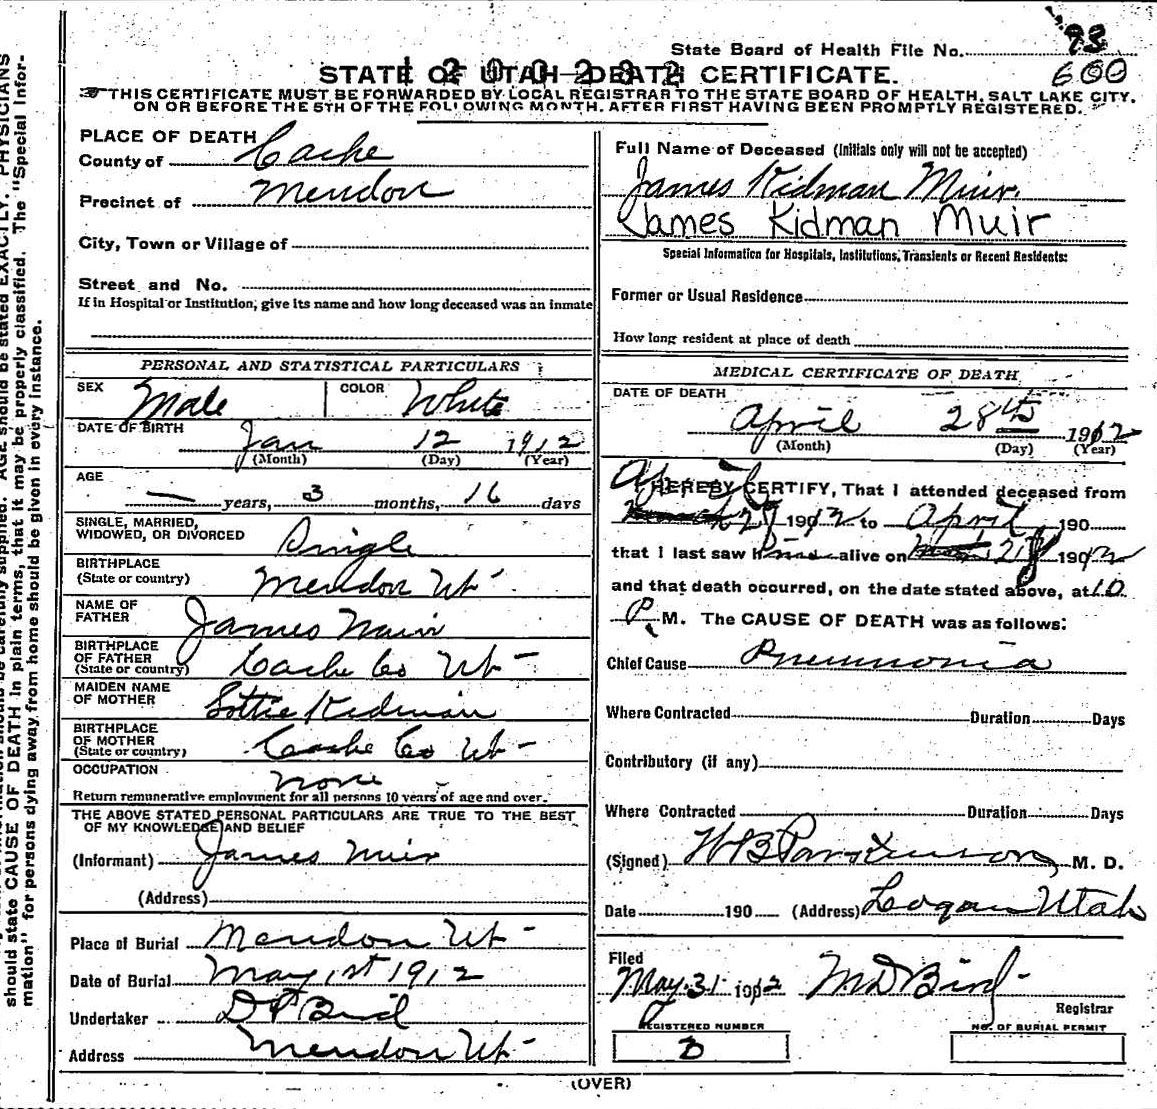 State Board of Health File No. 93
600
STATE OF UTAH—DEATH CERTIFICATE.
THIS CERTIFICATE MUST BE FORWARDED BY LOCAL REGISTRAR TO THE STATE BOARD OF HEALTH, SALT LAKE CITY,
ON OR BEFORE THE 5TH OF THE FOLLOWING MONTH, AFTER FIRST HAVING BEEN PROMPTLY REGISTERED.
PLACE OF DEATH
County of Cache
Precinct of Mendon
City, Town or Village of
Street and No.
If in Hospital or Institution, give its name and how long deceased was an inmate
PERSONAL AND STATISTICAL PARTICULARS
SEX Male COLOR White
DATE OF BIRTH Jan 12 1912
(Month) (Day) (Year)
AGE
— years, 3 months, 16 days
SINGLE, MARRIED,
WIDOWED, OR DIVORCED Single
BIRTHPLACE
(State or country) Mendon Ut
NAME OF
FATHER James Muir
BIRTHPLACE
OF FATHER
(State or country) Cache Co Ut
MAIDEN NAME
OF MOTHER Lottie Kidman
BIRTHPLACE
OF MOTHER
(State or country) Cache Co Ut
OCCUPATION none
Return remunerative employment for all persons 10 years of age and over.
THE ABOVE STATED PERSONAL PARTICULARS ARE TRUE TO THE BEST
OF MY KNOWLEDGE AND BELIEF
(Informant) James Muir
(Address)
Place of Burial Mendon Ut
Date of Burial May 1st 1912
Undertaker Bird
Address Mendon Ut
Full Name of Deceased (Initials only will not be accepted)
James Kidman Muir.
James Kidman Muir
Special Information for Hospitals, Institutions, Transients or Recent Residents:
Former or Usual Residence
How long resident at place of death
MEDICAL CERTIFICATE OF DEATH
DATE OF DEATH
April 28th 1912
(Month) (Day) (Year)
April
I HEREBY CERTIFY, That I attended deceased from
27 1912 to April 190
that I last saw him alive on 1912
and that death occurred, on the date stated above, at 10
P. M. The CAUSE OF DEATH was as follows:
Chief Cause Pneumonia
Where Contracted Duration Days
Contributory (if any)
Where Contracted Duration Days
(Signed) W B Parkinson, M. D.
Date 190 (Address) Logan Utah
Filed
May 31 1912 M D Bird
Registrar
REGISTERED NUMBER
3
NO. OF BURIAL PERMIT
(OVER)
should be stated EXACTLY. PHYSICIANS
should state CAUSE OF DEATH in plain terms, that it may be properly classified. The "Special Infor-
mation" for persons dying away from home should be given in every instance.